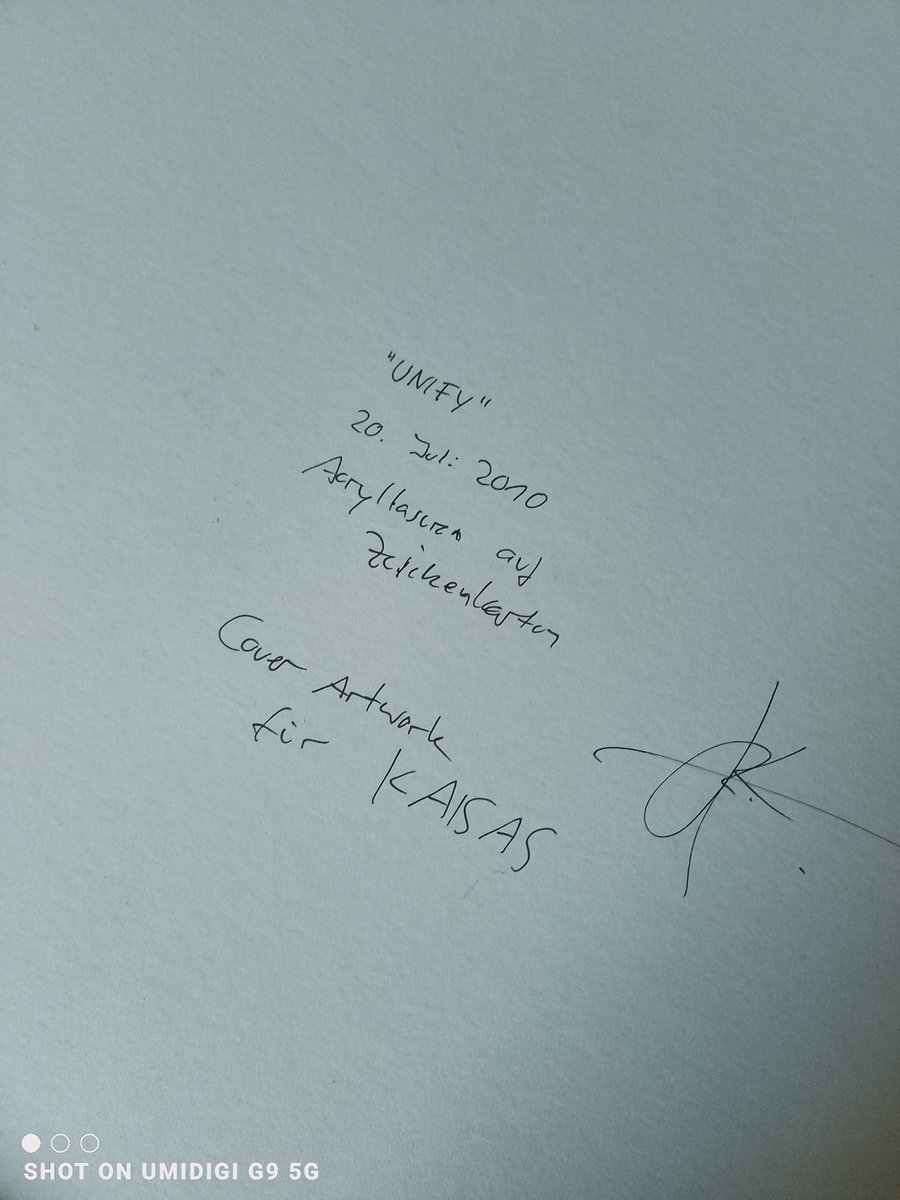 "UNIFY"
20. Juli 2010
Acryllasuren auf
Zeichenkarton
Cover Artwork
für KAISAS
SHOT ON UMIDIGI G9 5G